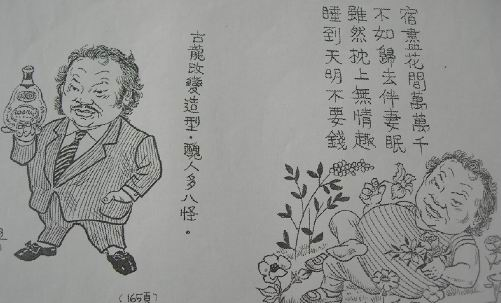 宿盡花間萬萬千
不如歸去伴妻眠
雖然枕上無情趣
睡到天明不要錢
古龍改變造型·醜人多八怪。
(165頁)